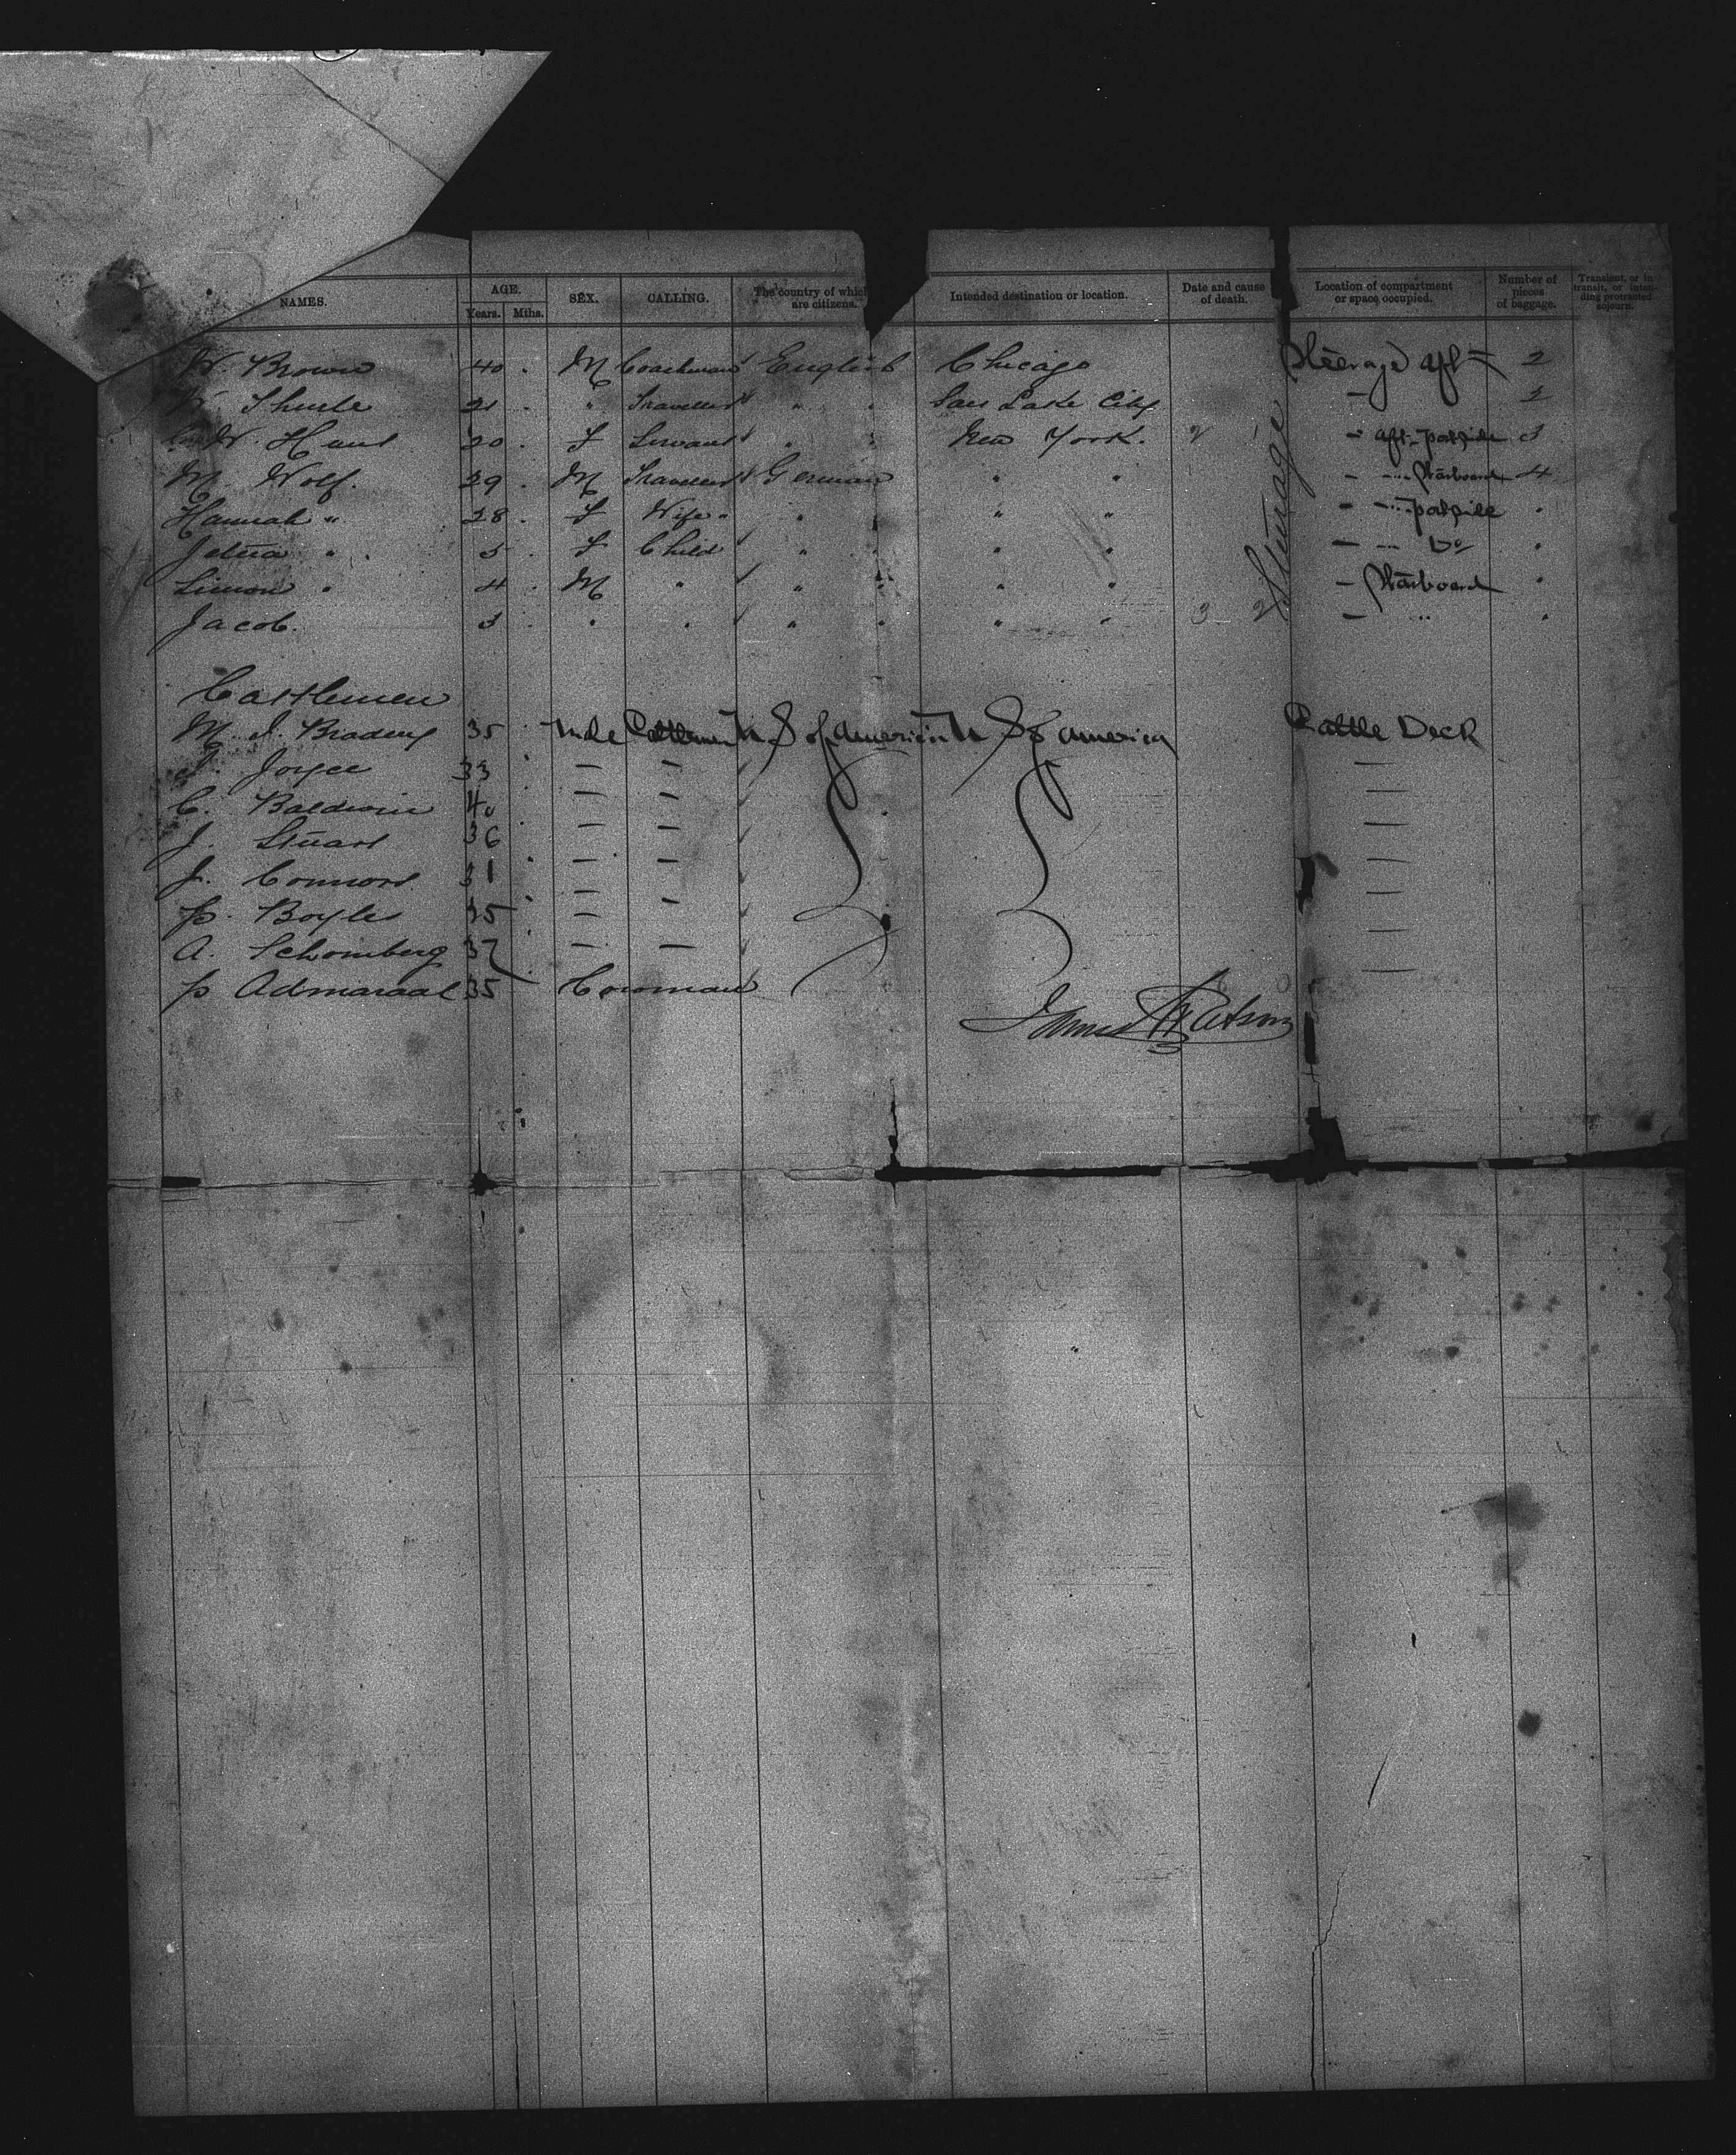 NAMES. AGE. Years. Mths. SEX. CALLING. The country of which are citizens. Intended destination or location. Date and cause of death. Location of compartment or space occupied. Number of pieces of baggage. Transient, or in transit, or intending protracted sojourn.
W. Brown 40 . M Coachman English Chicago Steerage aft 2
21 . " Traveller " " Salt Lake City - 2
W. Hunt 20 . F Servant " " New York. 2 1 - aft - portside 3
M. Wolf. 29 . M Traveller German " " - Starboard 4
Hannah " 28 . F Wife " " " " - portside "
" 5 . F Child " " " " - Do "
Simon " 4 . M " " " " " - Starboard "
Jacob. 3 . " " " " " " 3 2 - " "
Steerage
Cattlemen
M. J. 35 Male Cattleman U S of America U S of America Cattle Deck
J. Joyce 33 — — —
C. Baldwin 40 — — —
J. Stuart 36 — — —
J. Connors 31 — — —
P. Boyle 35 — — —
A. Schomberg 37 — — —
P Admaraal 35 Cowman
James Watson